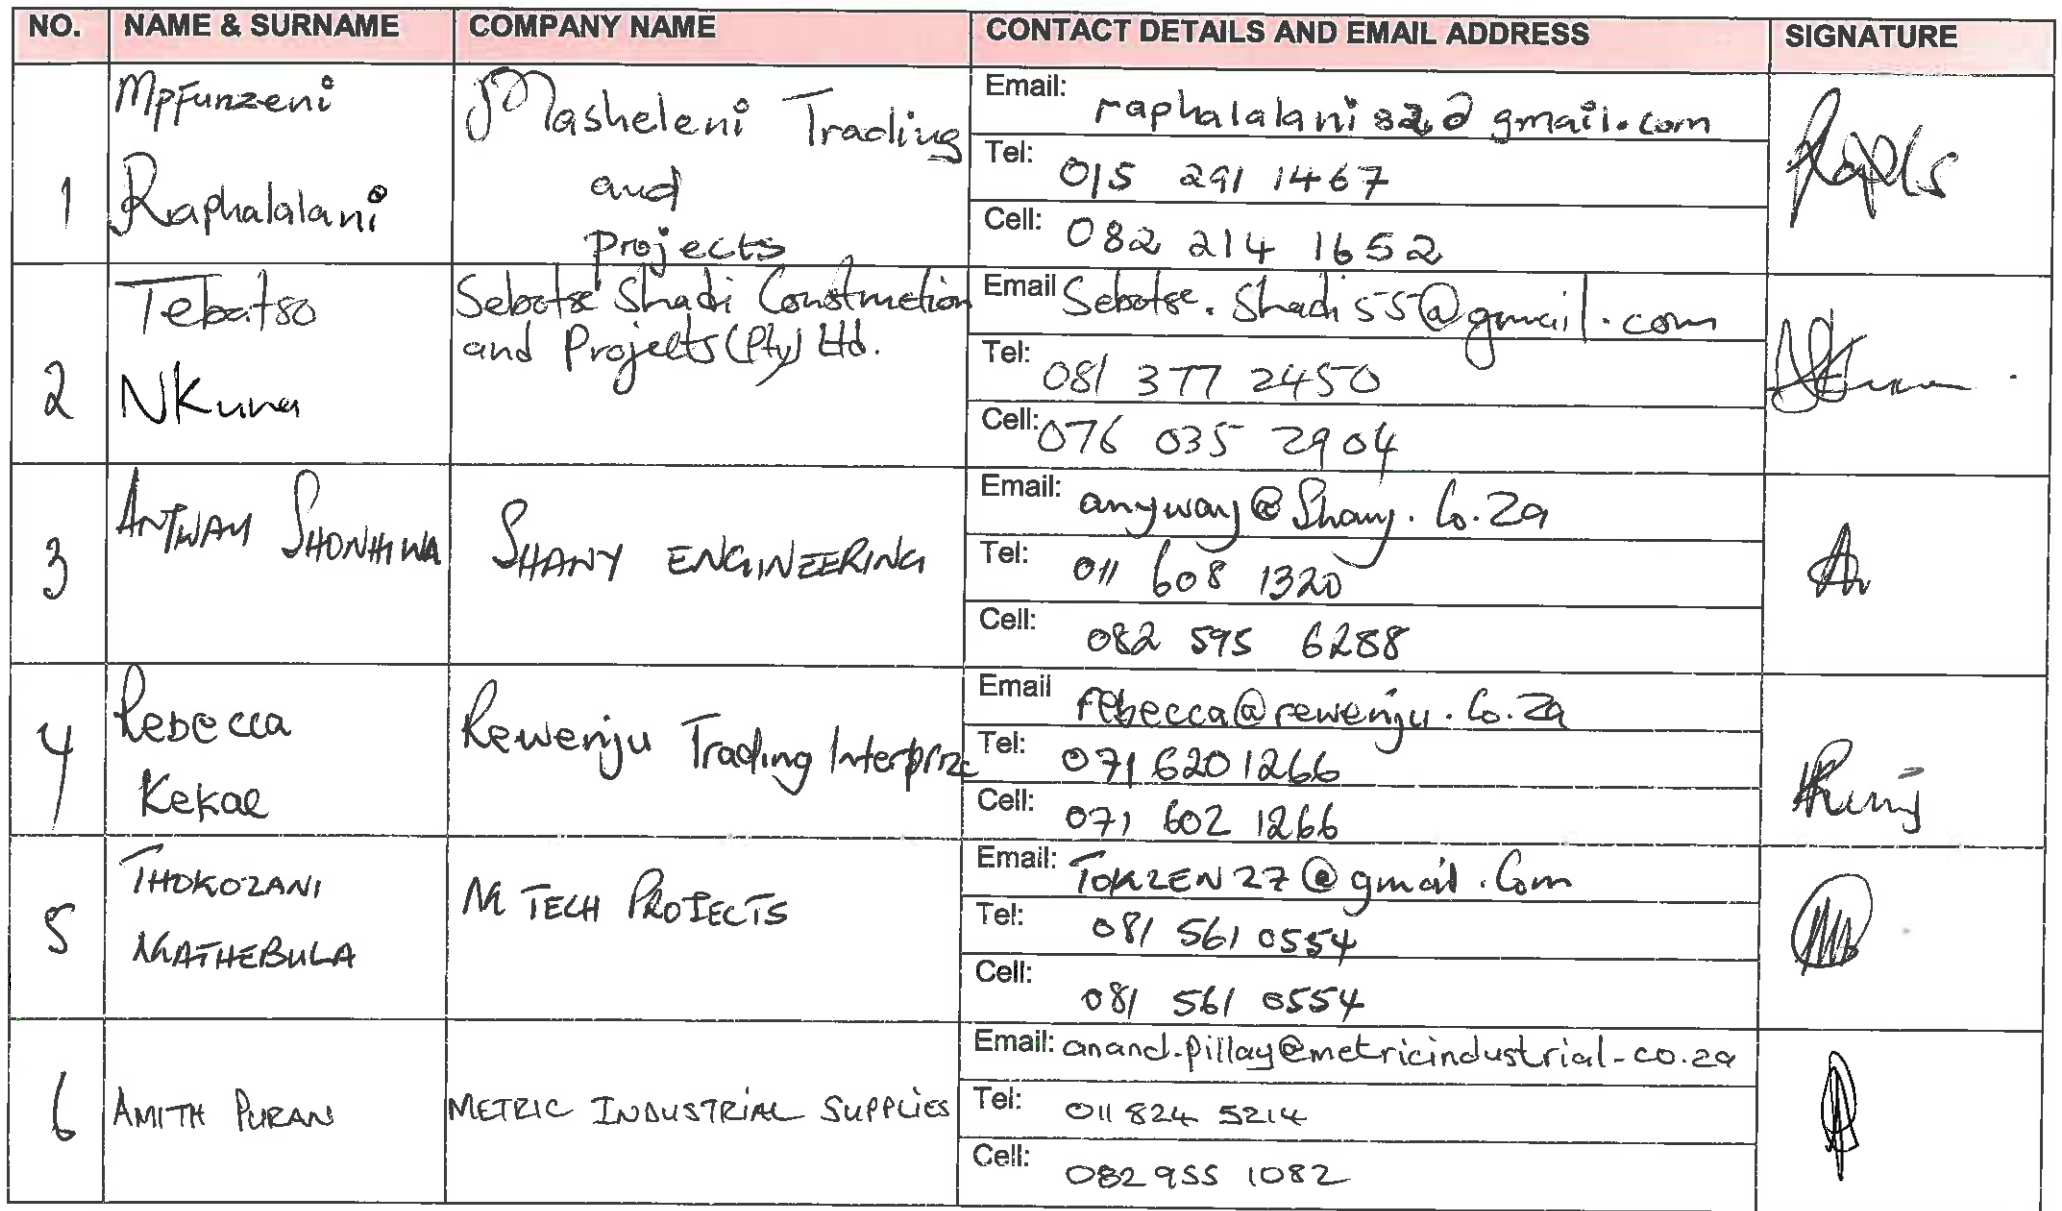 NO. NAME & SURNAME COMPANY NAME CONTACT DETAILS AND EMAIL ADDRESS SIGNATURE
1
Mpfunzeni
Raphalalani
Masheleni Trading
and
projects
Email: raphalalani82@gmail.com
Tel: 015 291 1467
Cell: 082 214 1652
2
Tebatso
Nkuna
Sebotse Shadi Construction
and Projects (Pty) Ltd.
Email Sebotse.Shadi55@gmail.com
Tel: 081 377 2450
Cell: 076 035 2904
3
ANYWAY SHONHIWA
SHANY ENGINEERING
Email: anyway@Shany.Co.Za
Tel: 011 608 1320
Cell: 082 595 6288
4
Rebecca
Kekae
Rewenju Trading Interprize
Email rebecca@rewenju.Co.Za
Tel: 071 620 1266
Cell: 071 602 1266
5
THOKOZANI
MATHEBULA
M TECH PROJECTS
Email: TOKZEN27@gmail.Com
Tel: 081 561 0554
Cell: 081 561 0554
6
AMITH PURAN
METRIC INDUSTRIAL SUPPLIES
Email: anand.pillay@metricindustrial-co.za
Tel: 011 824 5214
Cell: 082 955 1082